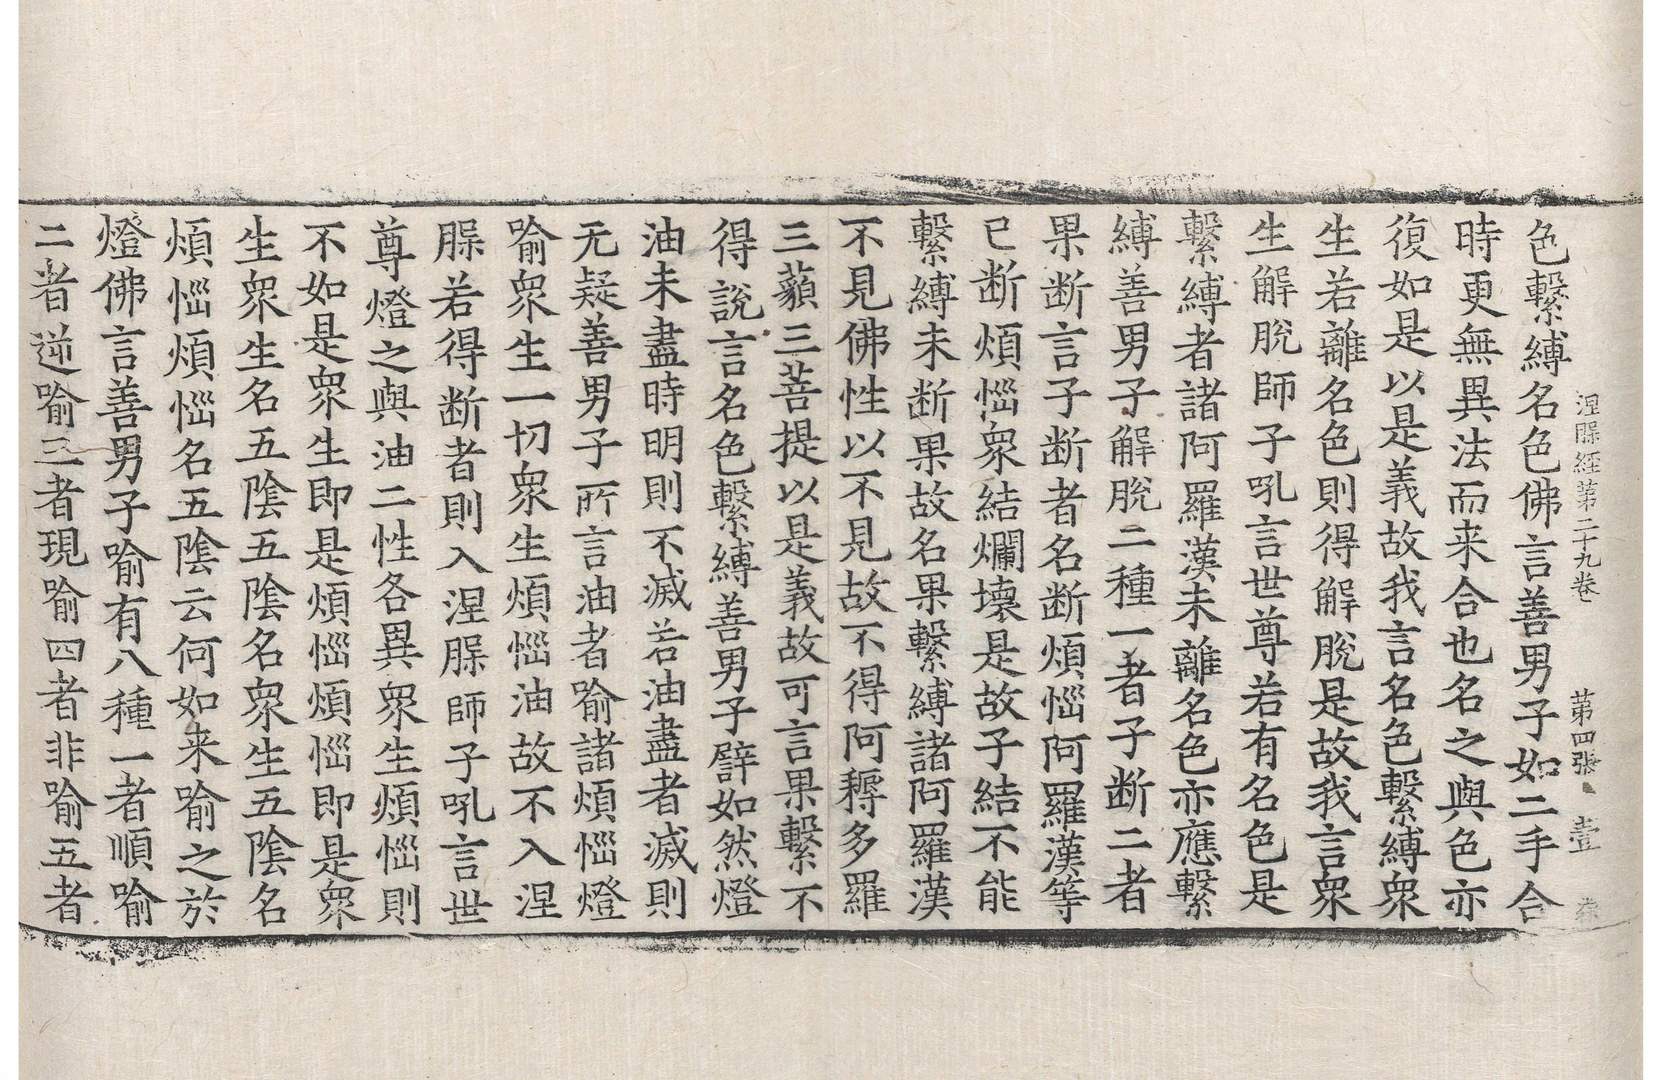 涅槃經第二十九卷 第四張 壹
色繫縛名色佛言善男子如二手合
時更無異法而来合也名之與色亦
復如是以是義故我言名色繫縛衆
生若離名色則得解脫是故我言衆
生解脫師子吼言世尊若有名色是
繫縛者諸阿羅漢未離名色亦應繫
縛善男子解脫二種一者子断二者
果断言子断者名断煩惱阿羅漢等
已断煩惱衆結爛壞是故子結不能
繫縛未断果故名果繫縛諸阿羅漢
不見佛性以不見故不得阿耨多羅
三藐三菩提以是義故可言果繫不
得說言名色繫縛善男子譬如然燈
油未盡時明則不滅若油盡者滅則
无疑善男子所言油者喻諸煩惱燈
喻衆生一切衆生煩惱油故不入涅
槃若得断者則入涅槃師子吼言世
尊燈之與油二性各異衆生煩惱則
不如是衆生即是煩惱煩惱即是衆
生衆生名五陰五陰名衆生五陰名
煩惱煩惱名五陰云何如来喻之於
燈佛言善男子喻有八種一者順喻
二者逆喻三者現喻四者非喻五者